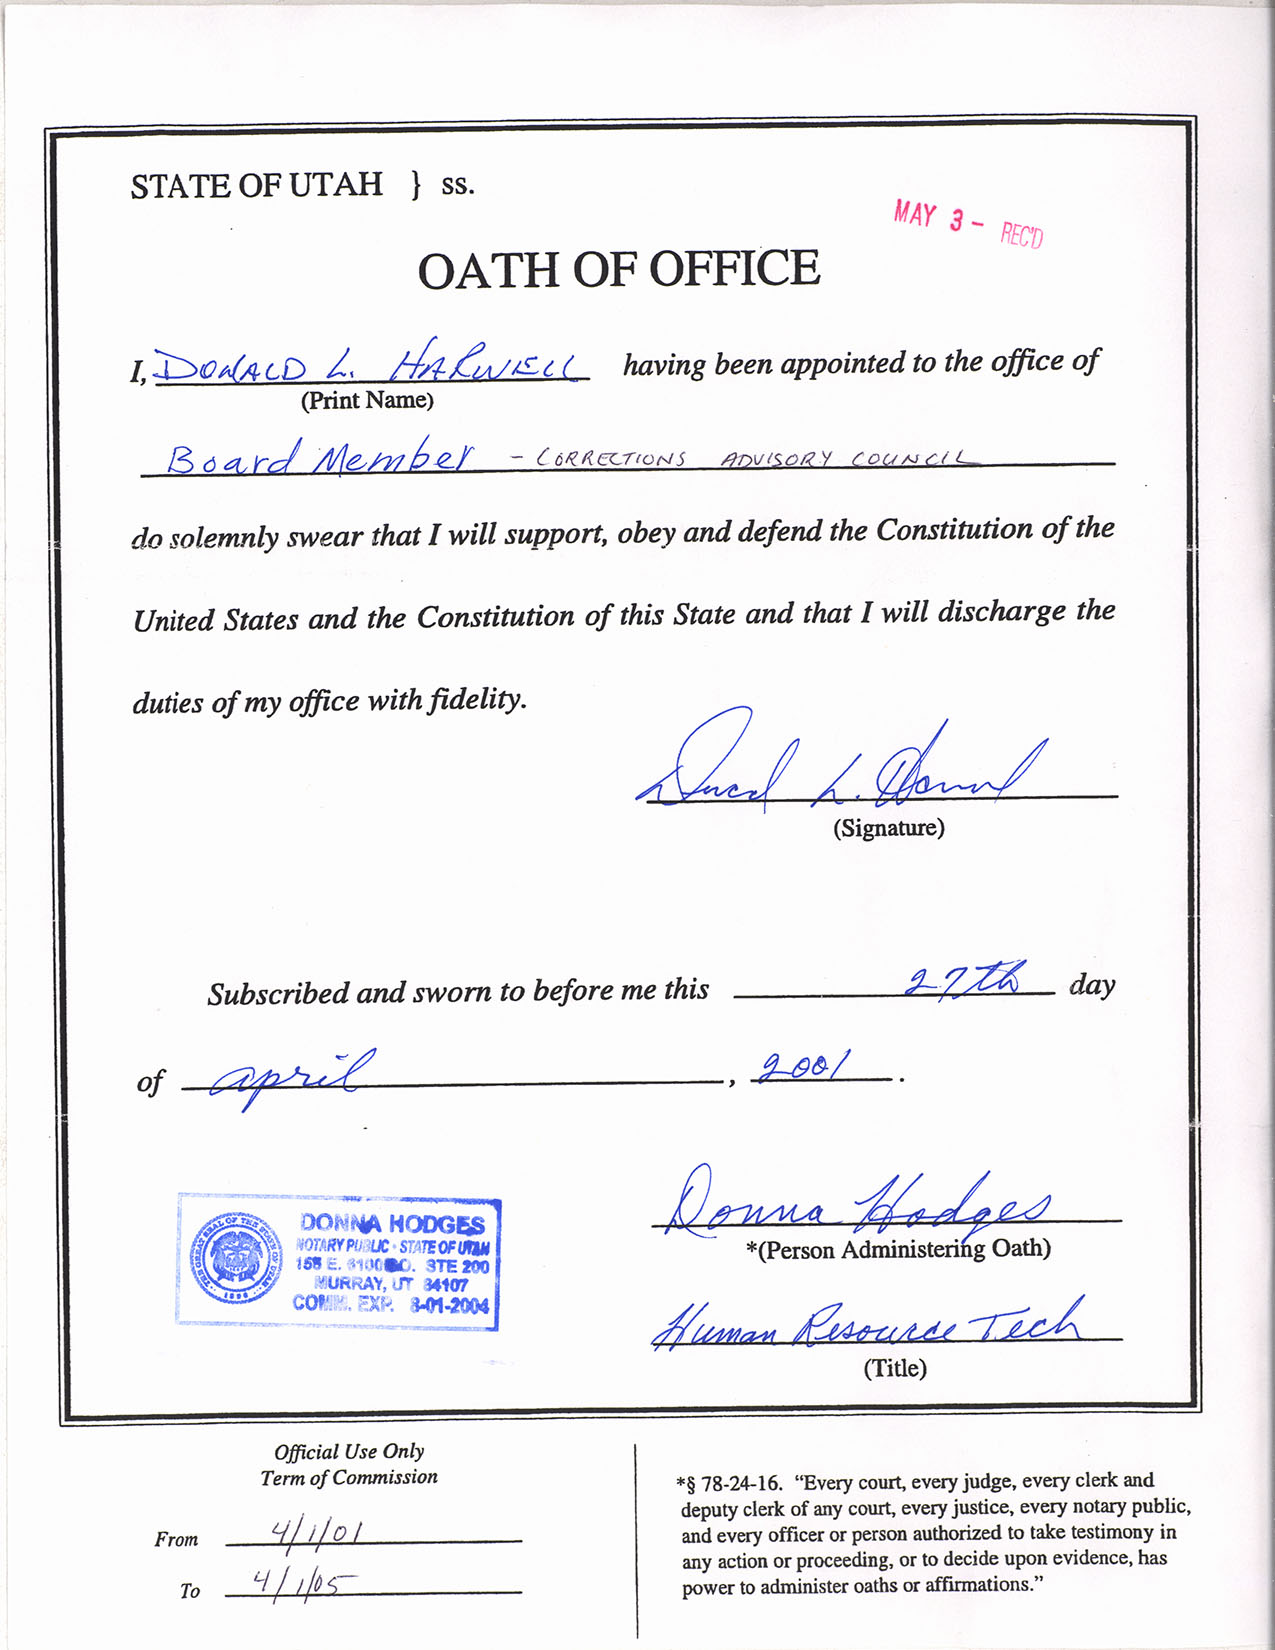 STATE OF UTAH } ss.
MAY 3 - REC'D
OATH OF OFFICE
I, DONALD L. HARWELL having been appointed to the office of
(Print Name)
Board Member - CORRECTIONS ADVISORY COUNCIL
do solemnly swear that I will support, obey and defend the Constitution of the
United States and the Constitution of this State and that I will discharge the
duties of my office with fidelity.
(Signature)
Subscribed and sworn to before me this 27th day
of april , 2001 .
Donna Hodges
*(Person Administering Oath)
Human Resource Tech
(Title)
THE GREAT SEAL OF THE STATE OF UTAH
1896
DONNA HODGES
NOTARY PUBLIC • STATE OF UTAH
155 E. 6100 SO. STE 200
MURRAY, UT 84107
COMM. EXP. 8-01-2004
Official Use Only
Term of Commission
From 4/1/01
To 4/1/05
*§ 78-24-16. “Every court, every judge, every clerk and
deputy clerk of any court, every justice, every notary public,
and every officer or person authorized to take testimony in
any action or proceeding, or to decide upon evidence, has
power to administer oaths or affirmations.”